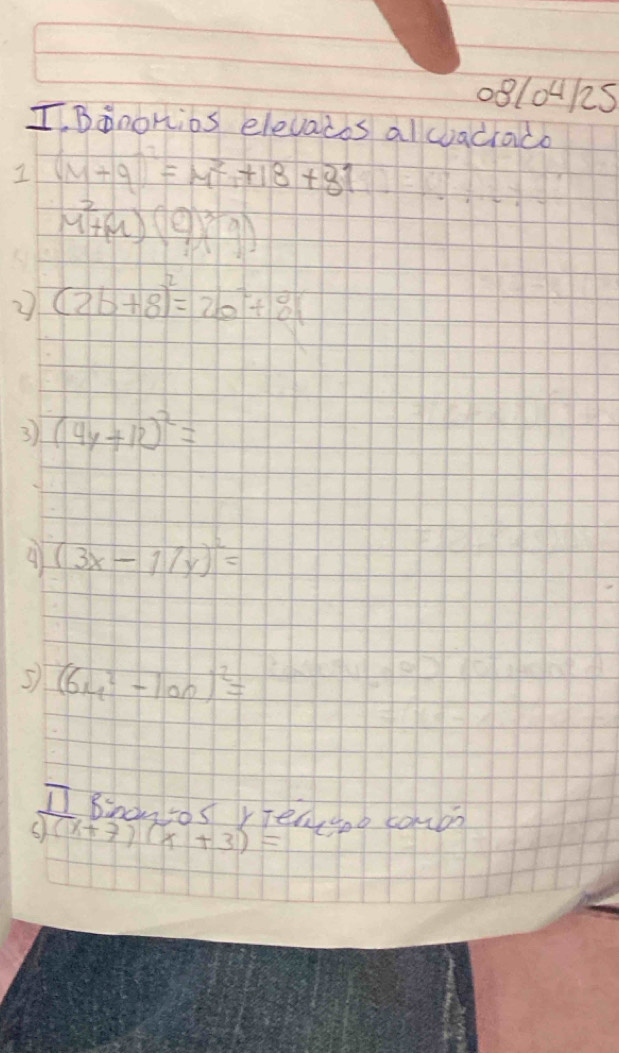 08/04/25
I. Binomios elevados al cuadrado
1 (M+9)² = M² + 18 + 81
M² + (M) (9)
2) (2b+8)² = 2b² + 8
3) (9y+12)² =
4) (3x - 17y)² =
5) (6M² - 10n)² =
II Binomios y término común
6) (x+7) (x+3) =